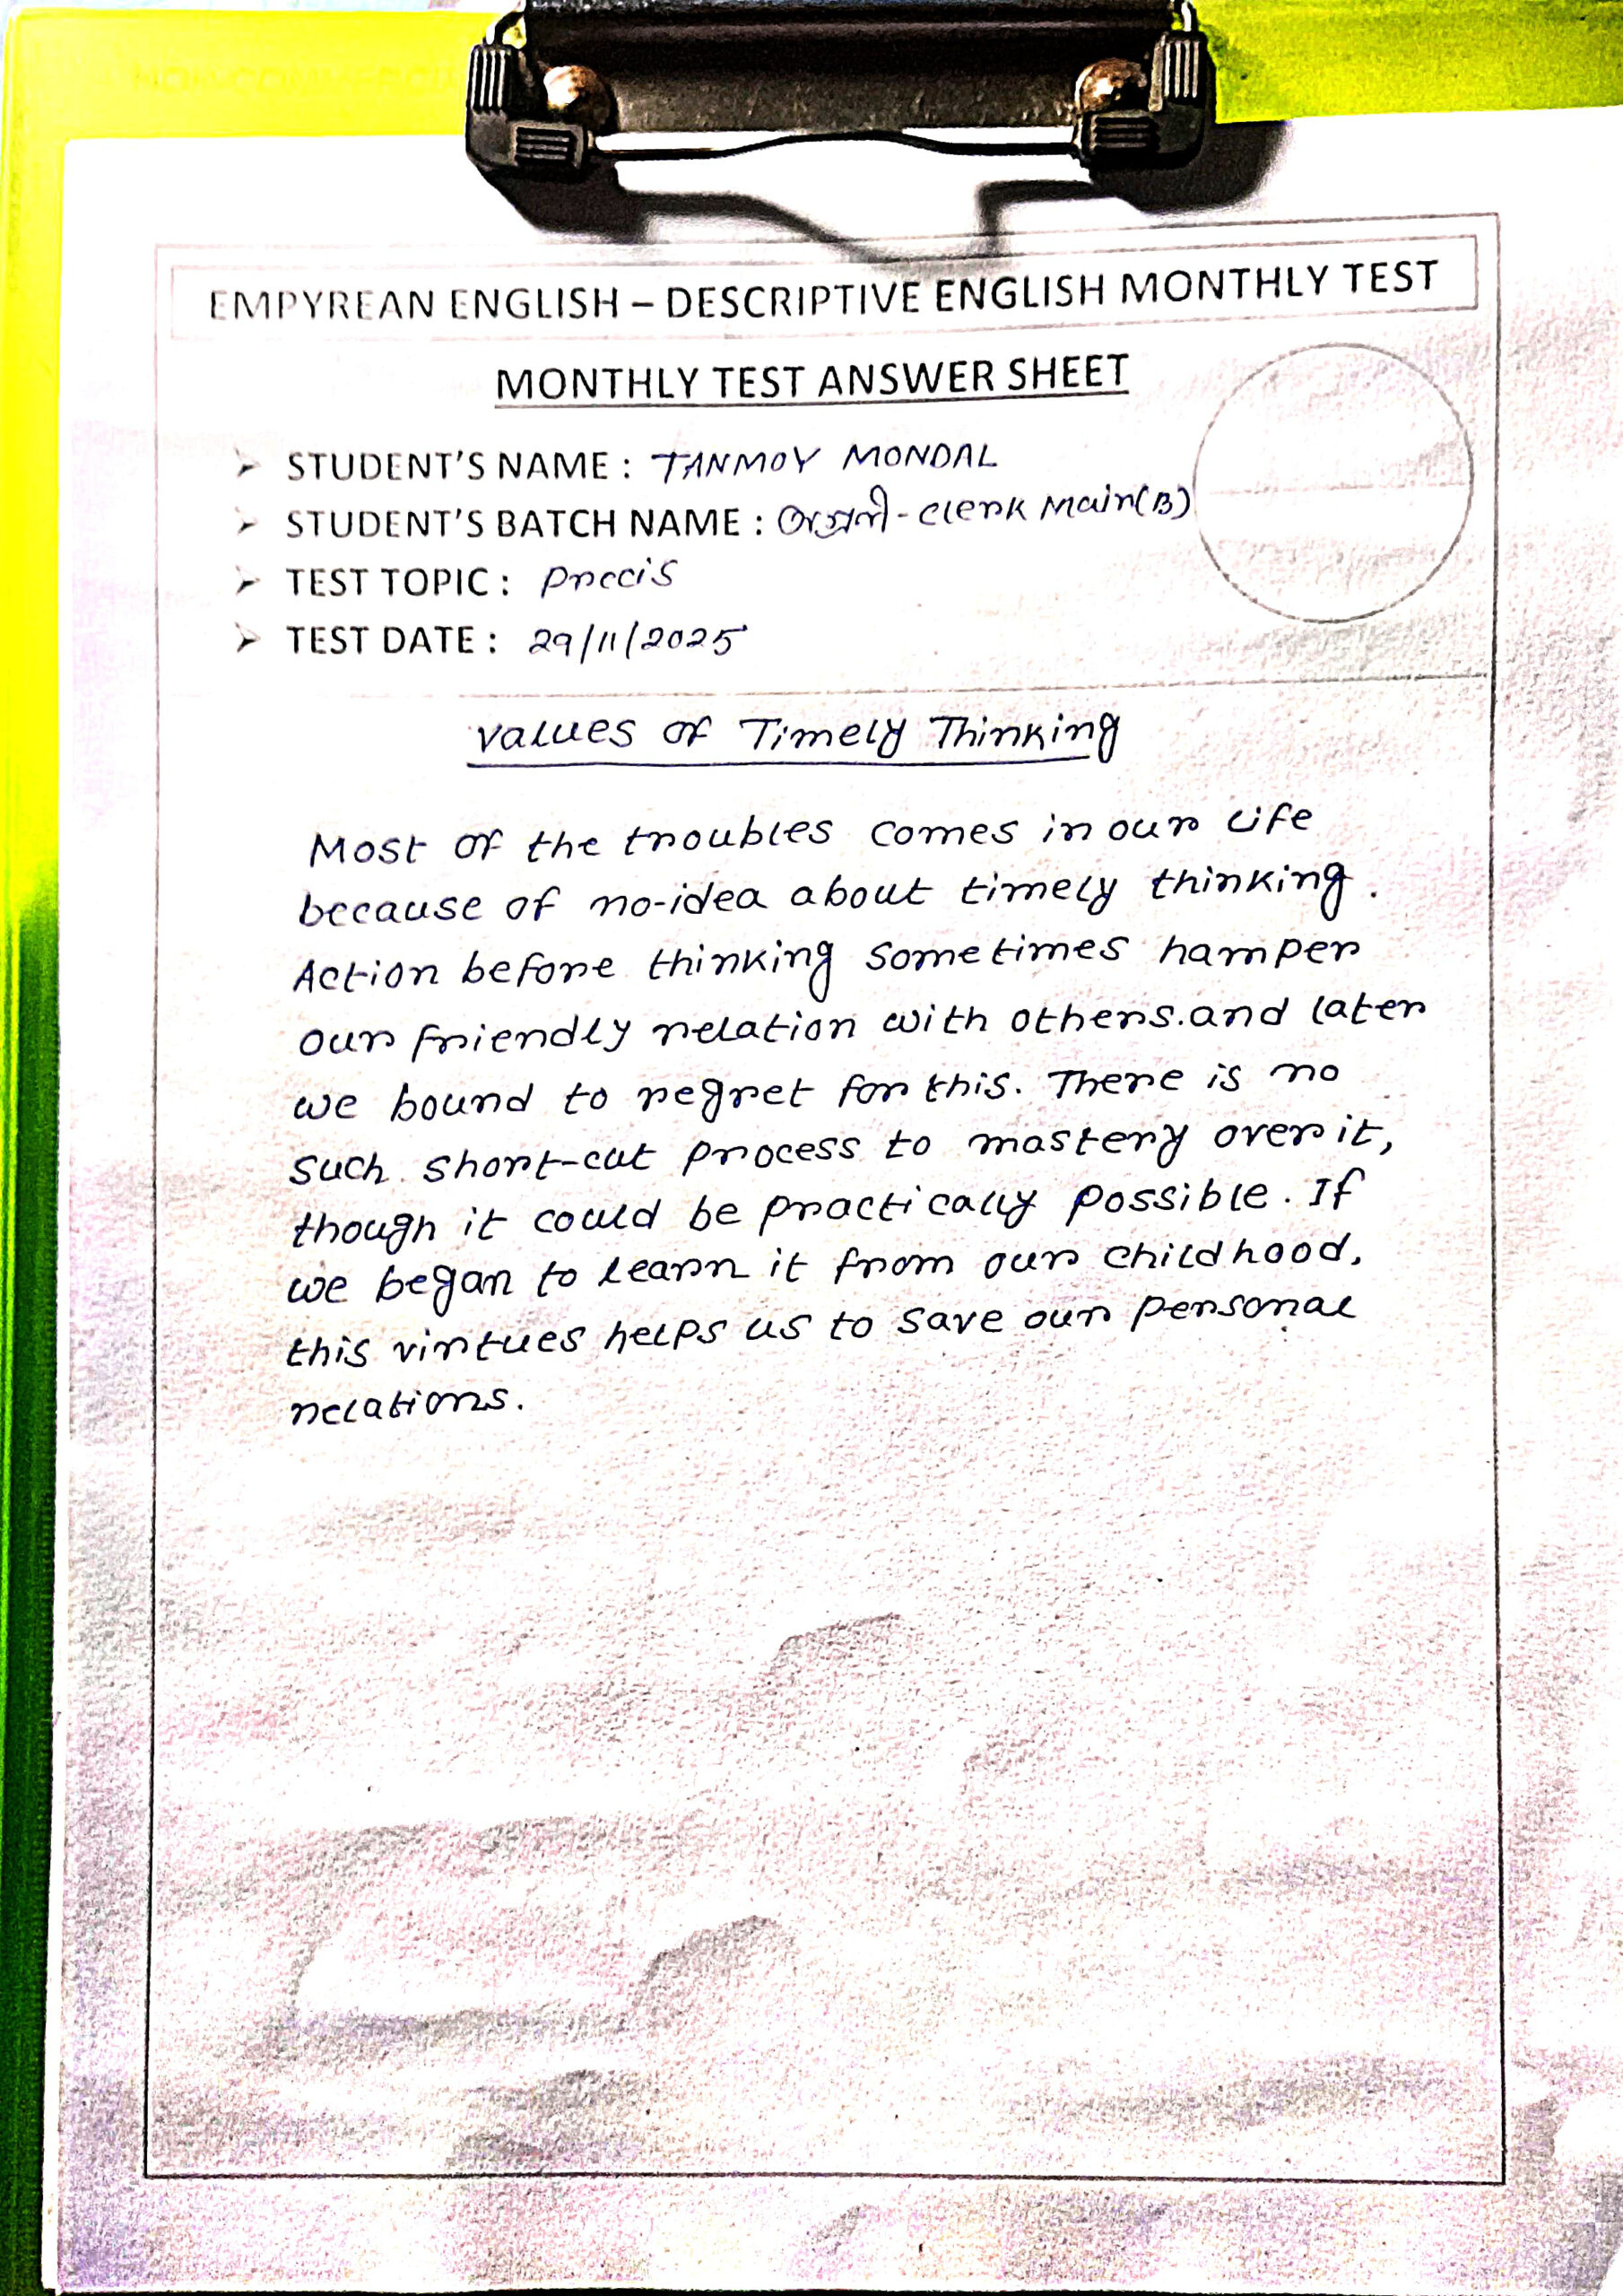 EMPYREAN ENGLISH – DESCRIPTIVE ENGLISH MONTHLY TEST
MONTHLY TEST ANSWER SHEET
➢ STUDENT'S NAME : TANMOY MONDAL
➢ STUDENT'S BATCH NAME : অগ্রণী - Clerk Main(B)
➢ TEST TOPIC : Precis
➢ TEST DATE : 29/11/2025
Values of Timely Thinking
Most of the troubles comes in our life
because of no-idea about timely thinking.
Action before thinking sometimes hamper
our friendly relation with others.and later
we bound to regret for this. There is no
such short-cut process to mastery over it,
though it could be practically possible. If
we began to learn it from our childhood,
this virtues helps us to save our personal
relations.